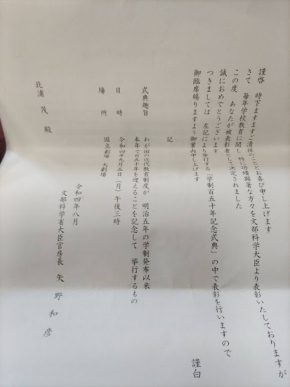 謹啓　時下ますますご清祥のこととお喜び申し上げます
さて　毎年学校教育に関し　特に功績顕著な方々を文部科学大臣より表彰いたしておりますが
この度　あなたが被表彰者に決定されました
誠におめでとうございます
つきましては　左記により挙行する「学制百五十年記念式典」の中で表彰を行いますので
御臨席賜りますよう御案内申し上げます
謹白
記
式典趣旨　わが国の近代教育制度が　明治五年の学制発布以来
本年で百五十年を迎えることを記念して、挙行するもの
日　時　令和四年九月五日（月）午後三時
場　所　国立劇場　大劇場
令和四年八月
文部科学省大臣官房長　矢　野　和　彦
茂　殿